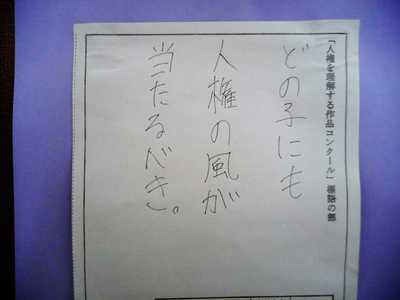 「人権を理解する作品コンクール」標語の部
どの子にも
人権の風が
当たるべき。